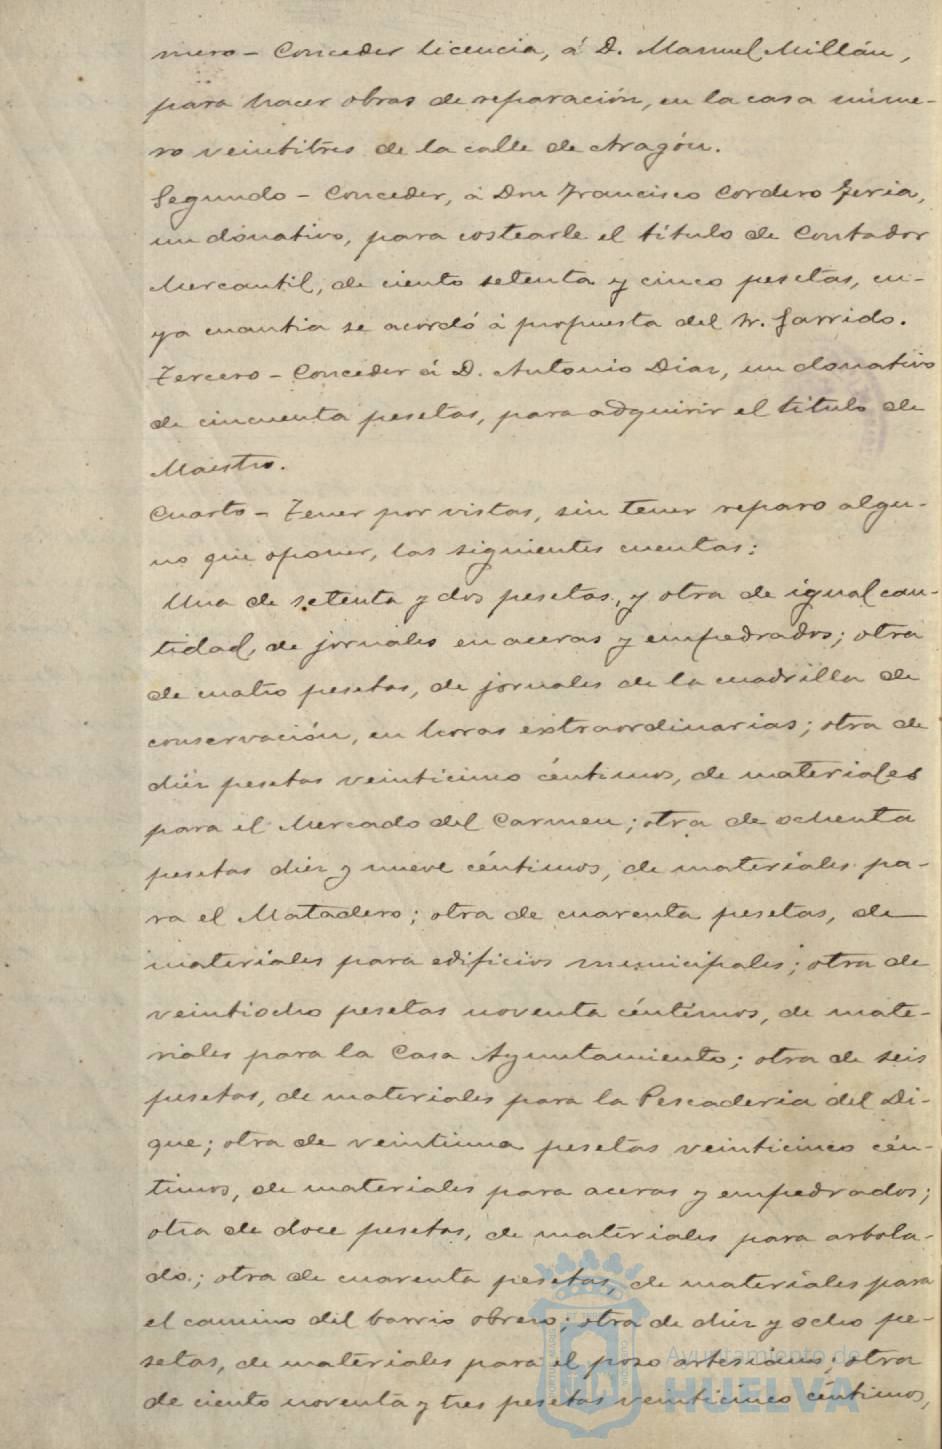 mero - Conceder licencia, á D. Manuel Millán,
para hacer obras de reparación, en la casa núme-
ro veintitres de la calle de Aragón.
Segundo - Conceder, á Don Francisco Cordero Feria,
un donativo, para costearle el título de Contador
Mercantil, de ciento setenta y cinco pesetas, cu-
ya cuantia se acordó á propuesta del Sr. Garrido.
Tercero - Conceder á D. Antonio Diaz, un donativo
de cincuenta pesetas, para adquirir el título de
Maestro.
Cuarto - Tener por vistas, sin tener reparo algu-
no que oponer, las siguientes cuentas:
Una de setenta y dos pesetas, y otra de igual can-
tidad, de jornales en aceras y empedrados; otra
de cuatro pesetas, de jornales de la cuadrilla de
conservación, en horas extraordinarias; otra de
diez pesetas veinticinco céntimos, de materiales
para el Mercado del Carmen; otra de ochenta
pesetas diez y nueve céntimos, de materiales pa-
ra el Matadero; otra de cuarenta pesetas, de
materiales para edificios municipales; otra de
veintiocho pesetas noventa céntimos, de mate-
riales para la Casa Ayuntamiento; otra de seis
pesetas, de materiales para la Pescaderia del Di-
que; otra de veintiuna pesetas veinticinco cén-
timos, de materiales para aceras y empedrados;
otra de doce pesetas, de materiales para arbola-
do; otra de cuarenta pesetas, de materiales para
el camino del barrio obrero; otra de diez y ocho pe-
setas, de materiales para el pozo artesiano; otra
de ciento noventa y tres pesetas veinticinco céntimos,
Ayuntamiento de
HUELVA